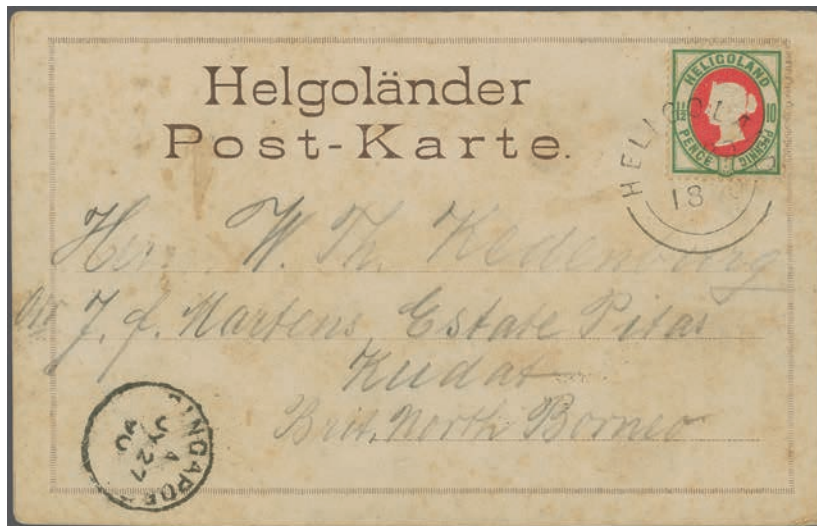 Helgoländer
Post-Karte.
HELIGOLAND
1½ 10
PENCE PFENNIG
HELIGOL
18
Herrn W. Th.
J. F. Martens Estate Pitas
Kudat
Brit. North Borneo
SINGAPORE
A
JY 27
90